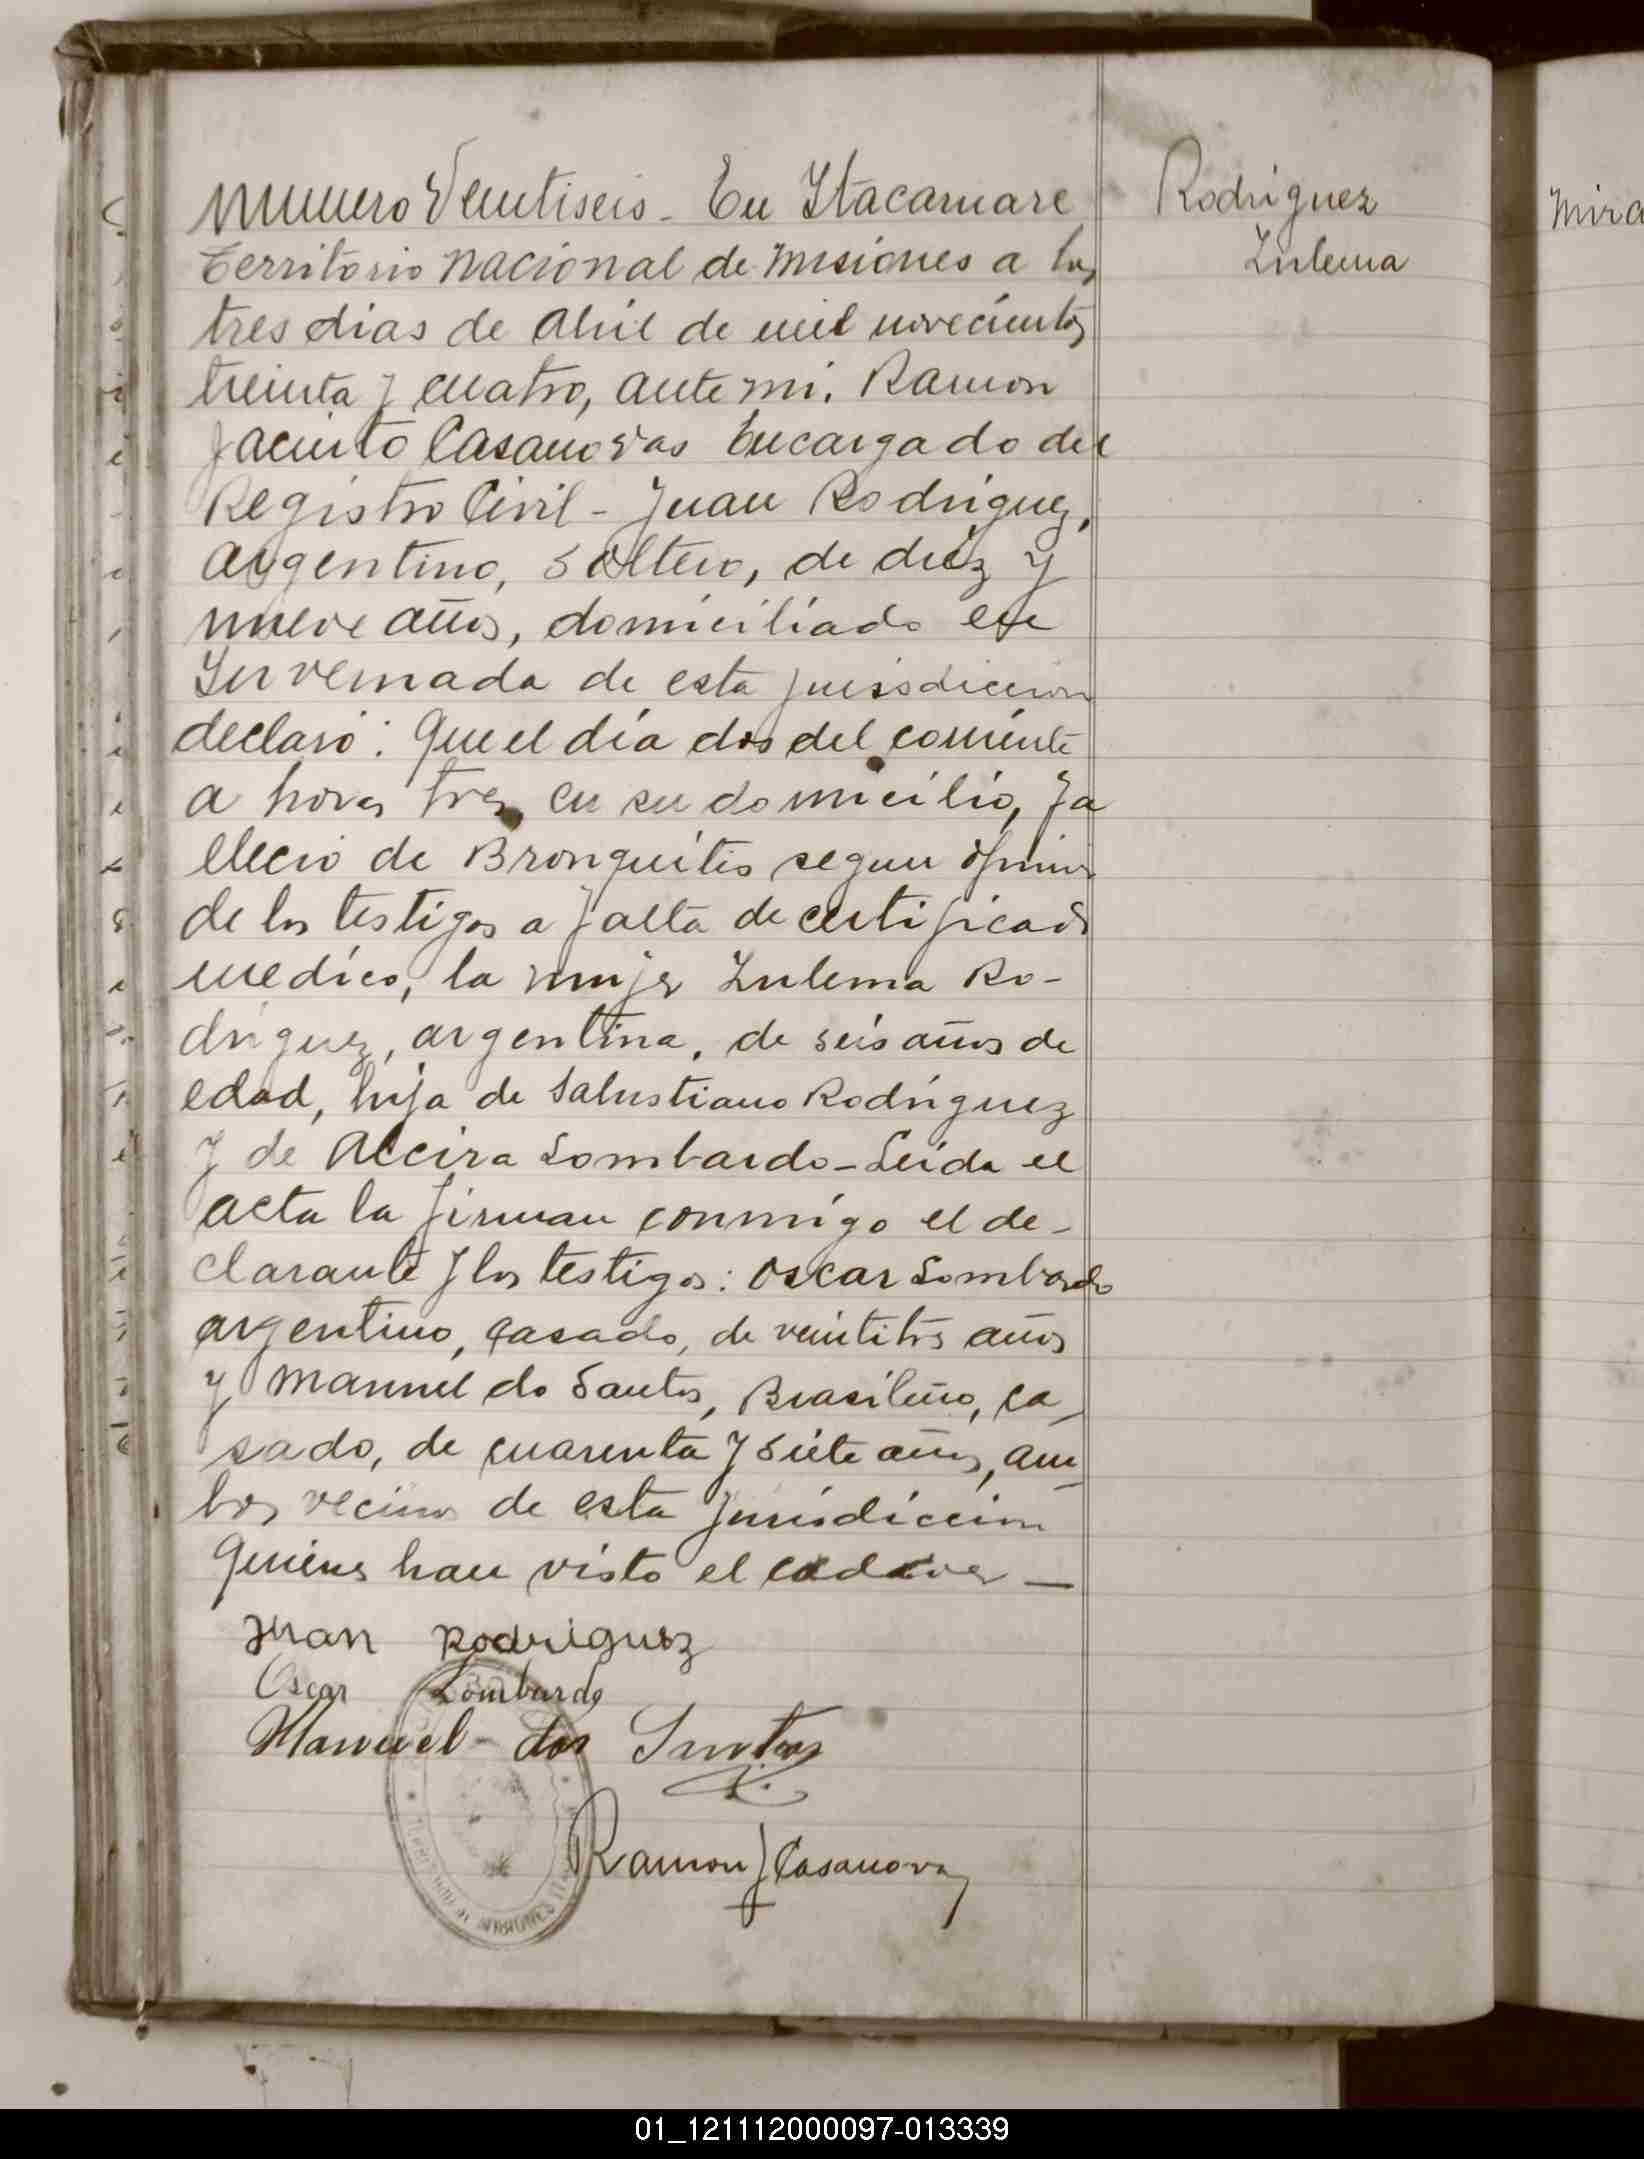 Numero Veintiseis - En Itacaruare
Rodriguez
Zulema
Mira
Territorio Nacional de Misiones a los
tres dias de Abril de mil novecientos
treinta y cuatro, ante mi, Ramon
Jacinto Casanovas Encargado del
Registro Civil - Juan Rodriguez,
argentino, soltero, de diez y
nueve años, domiciliado en
Invernada de esta jurisdiccion
declaró: Que el día dos del corriente
a horas tres en su domicilio, fa
llecio de Bronquitis segun opinion
de los testigos a falta de certificado
medico, la mujer Zulema Ro-
driguez, argentina, de seis años de
edad, hija de Salustiano Rodriguez
y de Alcira Lombardo - Leida el
acta la firman conmigo el de-
clarante y los testigos: Oscar Lombardo
argentino, casado, de veintitrés años
y Manuel do Santos, Brasileño, ca-
sado, de cuarenta y siete años, am-
bos vecinos de esta jurisdiccion
Quienes han visto el cadaver —
Juan Rodriguez
Oscar Lombardo
Manuel dos Santos
Ramon J Casanovas
01_121112000097-013339